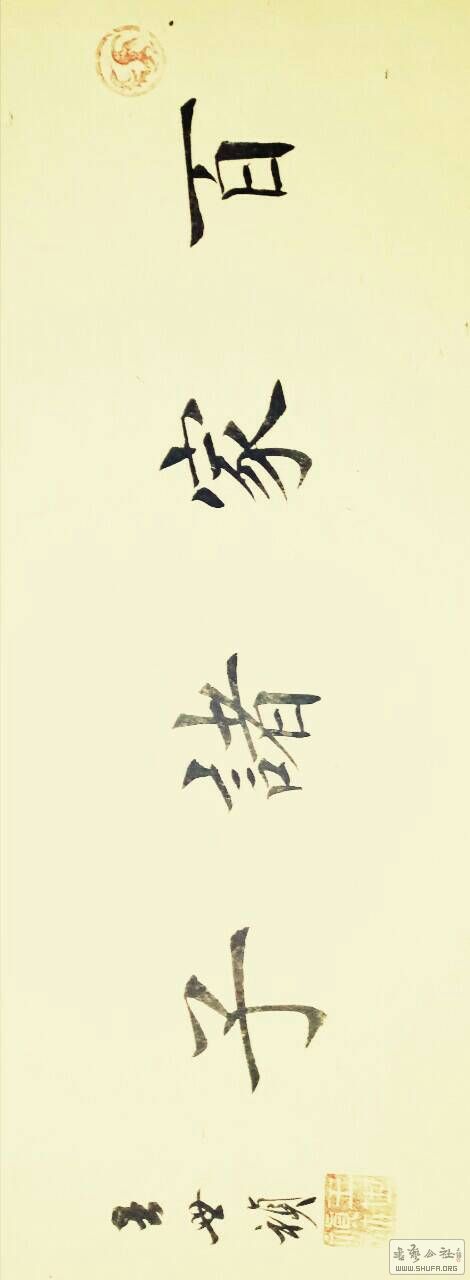 百家諸子
王世禎
書藝公社
WWW.SHUFA.ORG